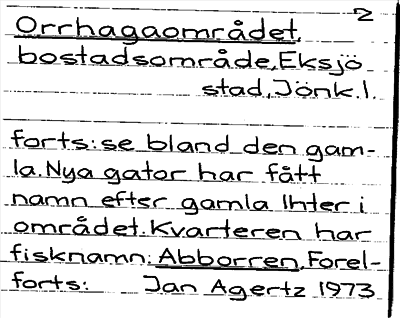 2
Orrhagaområdet,
bostadsområde, Eksjö
stad, Jönk. l.
forts: se bland den gam-
la. Nya gator har fått
namn efter gamla lhter i
området. Kvarteren har
fisknamn: Abborren, Forel-
forts: Jan Agertz 1973